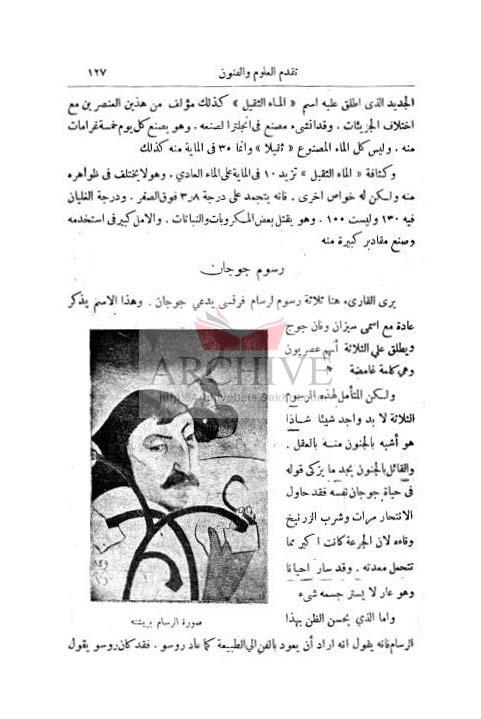 تقدم العلوم والفنون ١٢٧
الجديد الذى اطلق عليه اسم « الماء الثقيل » كذلك مؤلف من هذين العنصرين مع
اختلاف الجزيئات . وقد انشىء مصنع فى انجلترا لصنعه . وهو يصنع كل يوم خمسة غرامات
منه . وليس كل الماء المصنوع « ثقيلا » وانما ٣٠ فى الماية منه كذلك
وكثافة « الماء الثقيل » تزيد ١٠ فى الماية على الماء العادي . وهو لا يختلف فى ظواهره
منه ولكن له خواص اخرى . فانه يتجمد على درجة ٣٫٨ فوق الصفر . ودرجة الغليان
فيه ١٣٠ وليست ١٠٠ . وهو يقتل بعض المكروبات والنباتات . والامل كبير فى استخدمه
وصنع مقادير كبيرة منه
رسوم جوجان
يرى القارىء هنا ثلاثة رسوم لرسام فرنسى يدعي جوجان . وهذا الاسم يذكر
عادة مع اسمى سيزان وفان جوج
ويطلق على الثلاثة أنهم عصريون
وهى كلمة غامضة
ولكن المتأمل لهذه الرسوم
الثلاثة لا بد واجد شيئا شاذا
هو أشبه بالجنون منه بالعقل .
والقائل بالجنون يجد ما يزكى قوله
فى حياة جوجان نفسه فقد حاول
الانتحار مرات وشرب الزرنيخ
وقاءه لان الجرعة كانت اكبر مما
تتحمل معدته . وقد سار احيانا
وهو عار لا يستر جسمه شىء
واما الذي يحسن الظن بهذا
الرسام فانه يقول انه اراد أن يعود بالفن الى الطبيعة كما عاد روسو . فقد كان روسو يقول
صورة الرسام بريشته
ARCHIVE
http://Archivebeta.Sakhrit.com